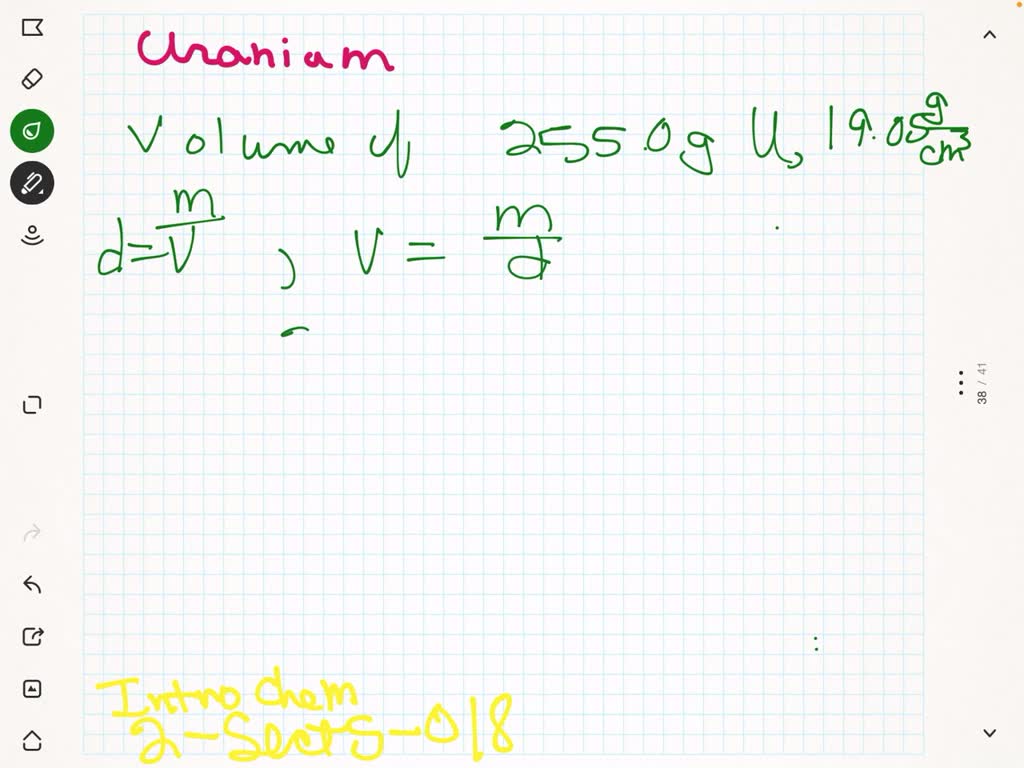 Uranium
Volume of 255.0g U, 19.05 g/cm3
d = m/V , V = m/d
38 / 41
Intro Chem
2-Sect5-018